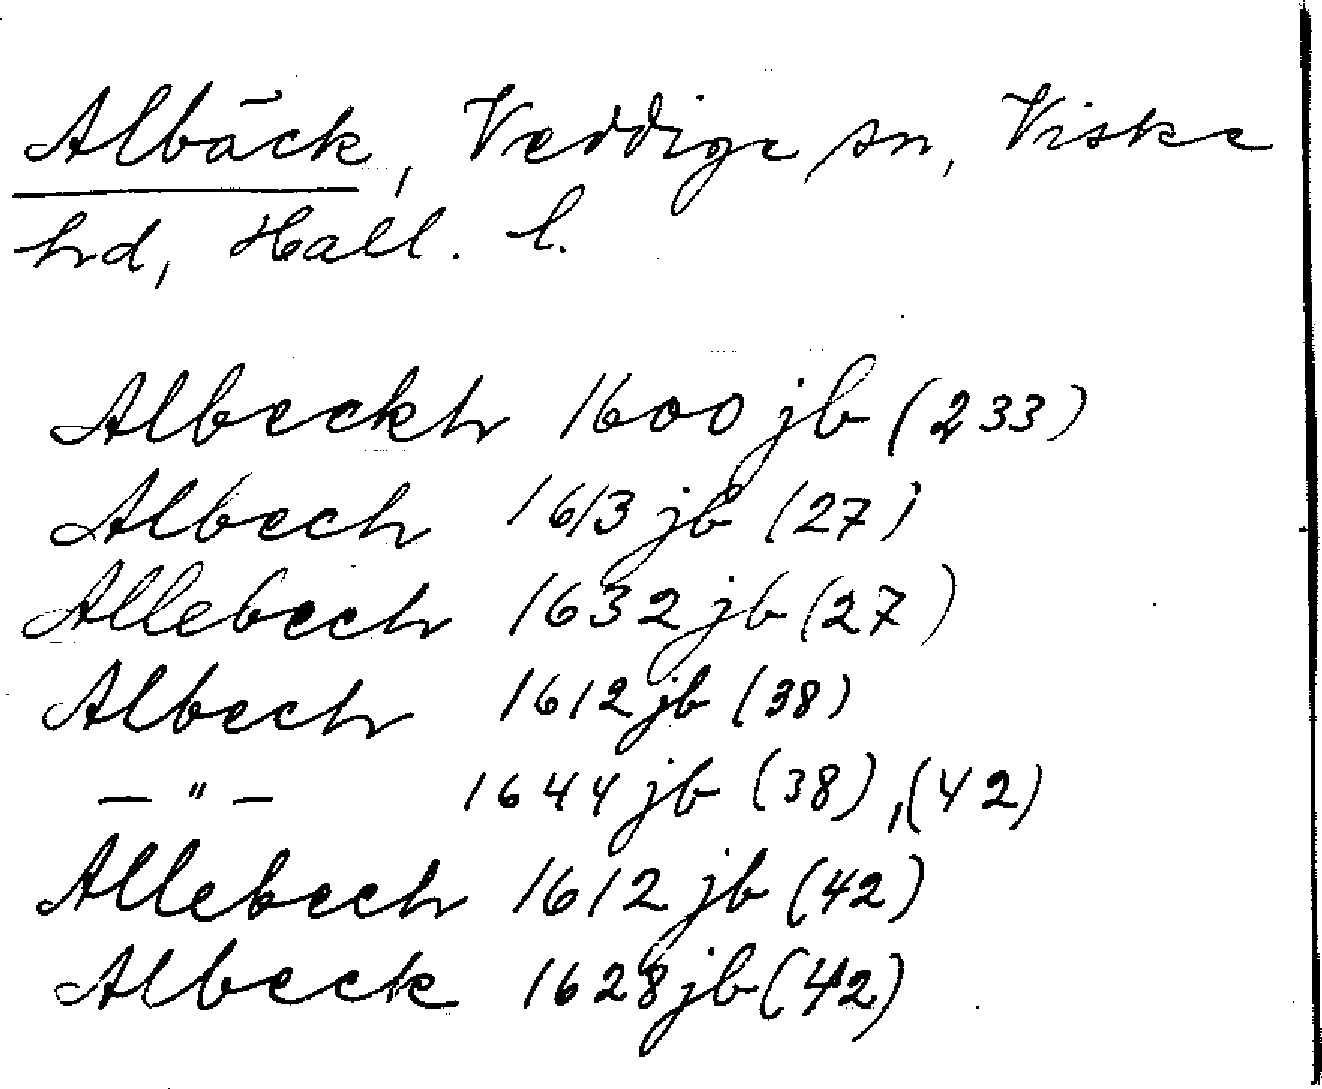 Albäck, Veddige sn, Viske
hd, Hall. l.
Albeckh 1600 jb (233)
Albech 1613 jb (27)
Allebech 1632 jb (27)
Albech 1612 jb (38)
— " — 1644 jb (38), (42)
Allebech 1612 jb (42)
Albeck 1628 jb (42)